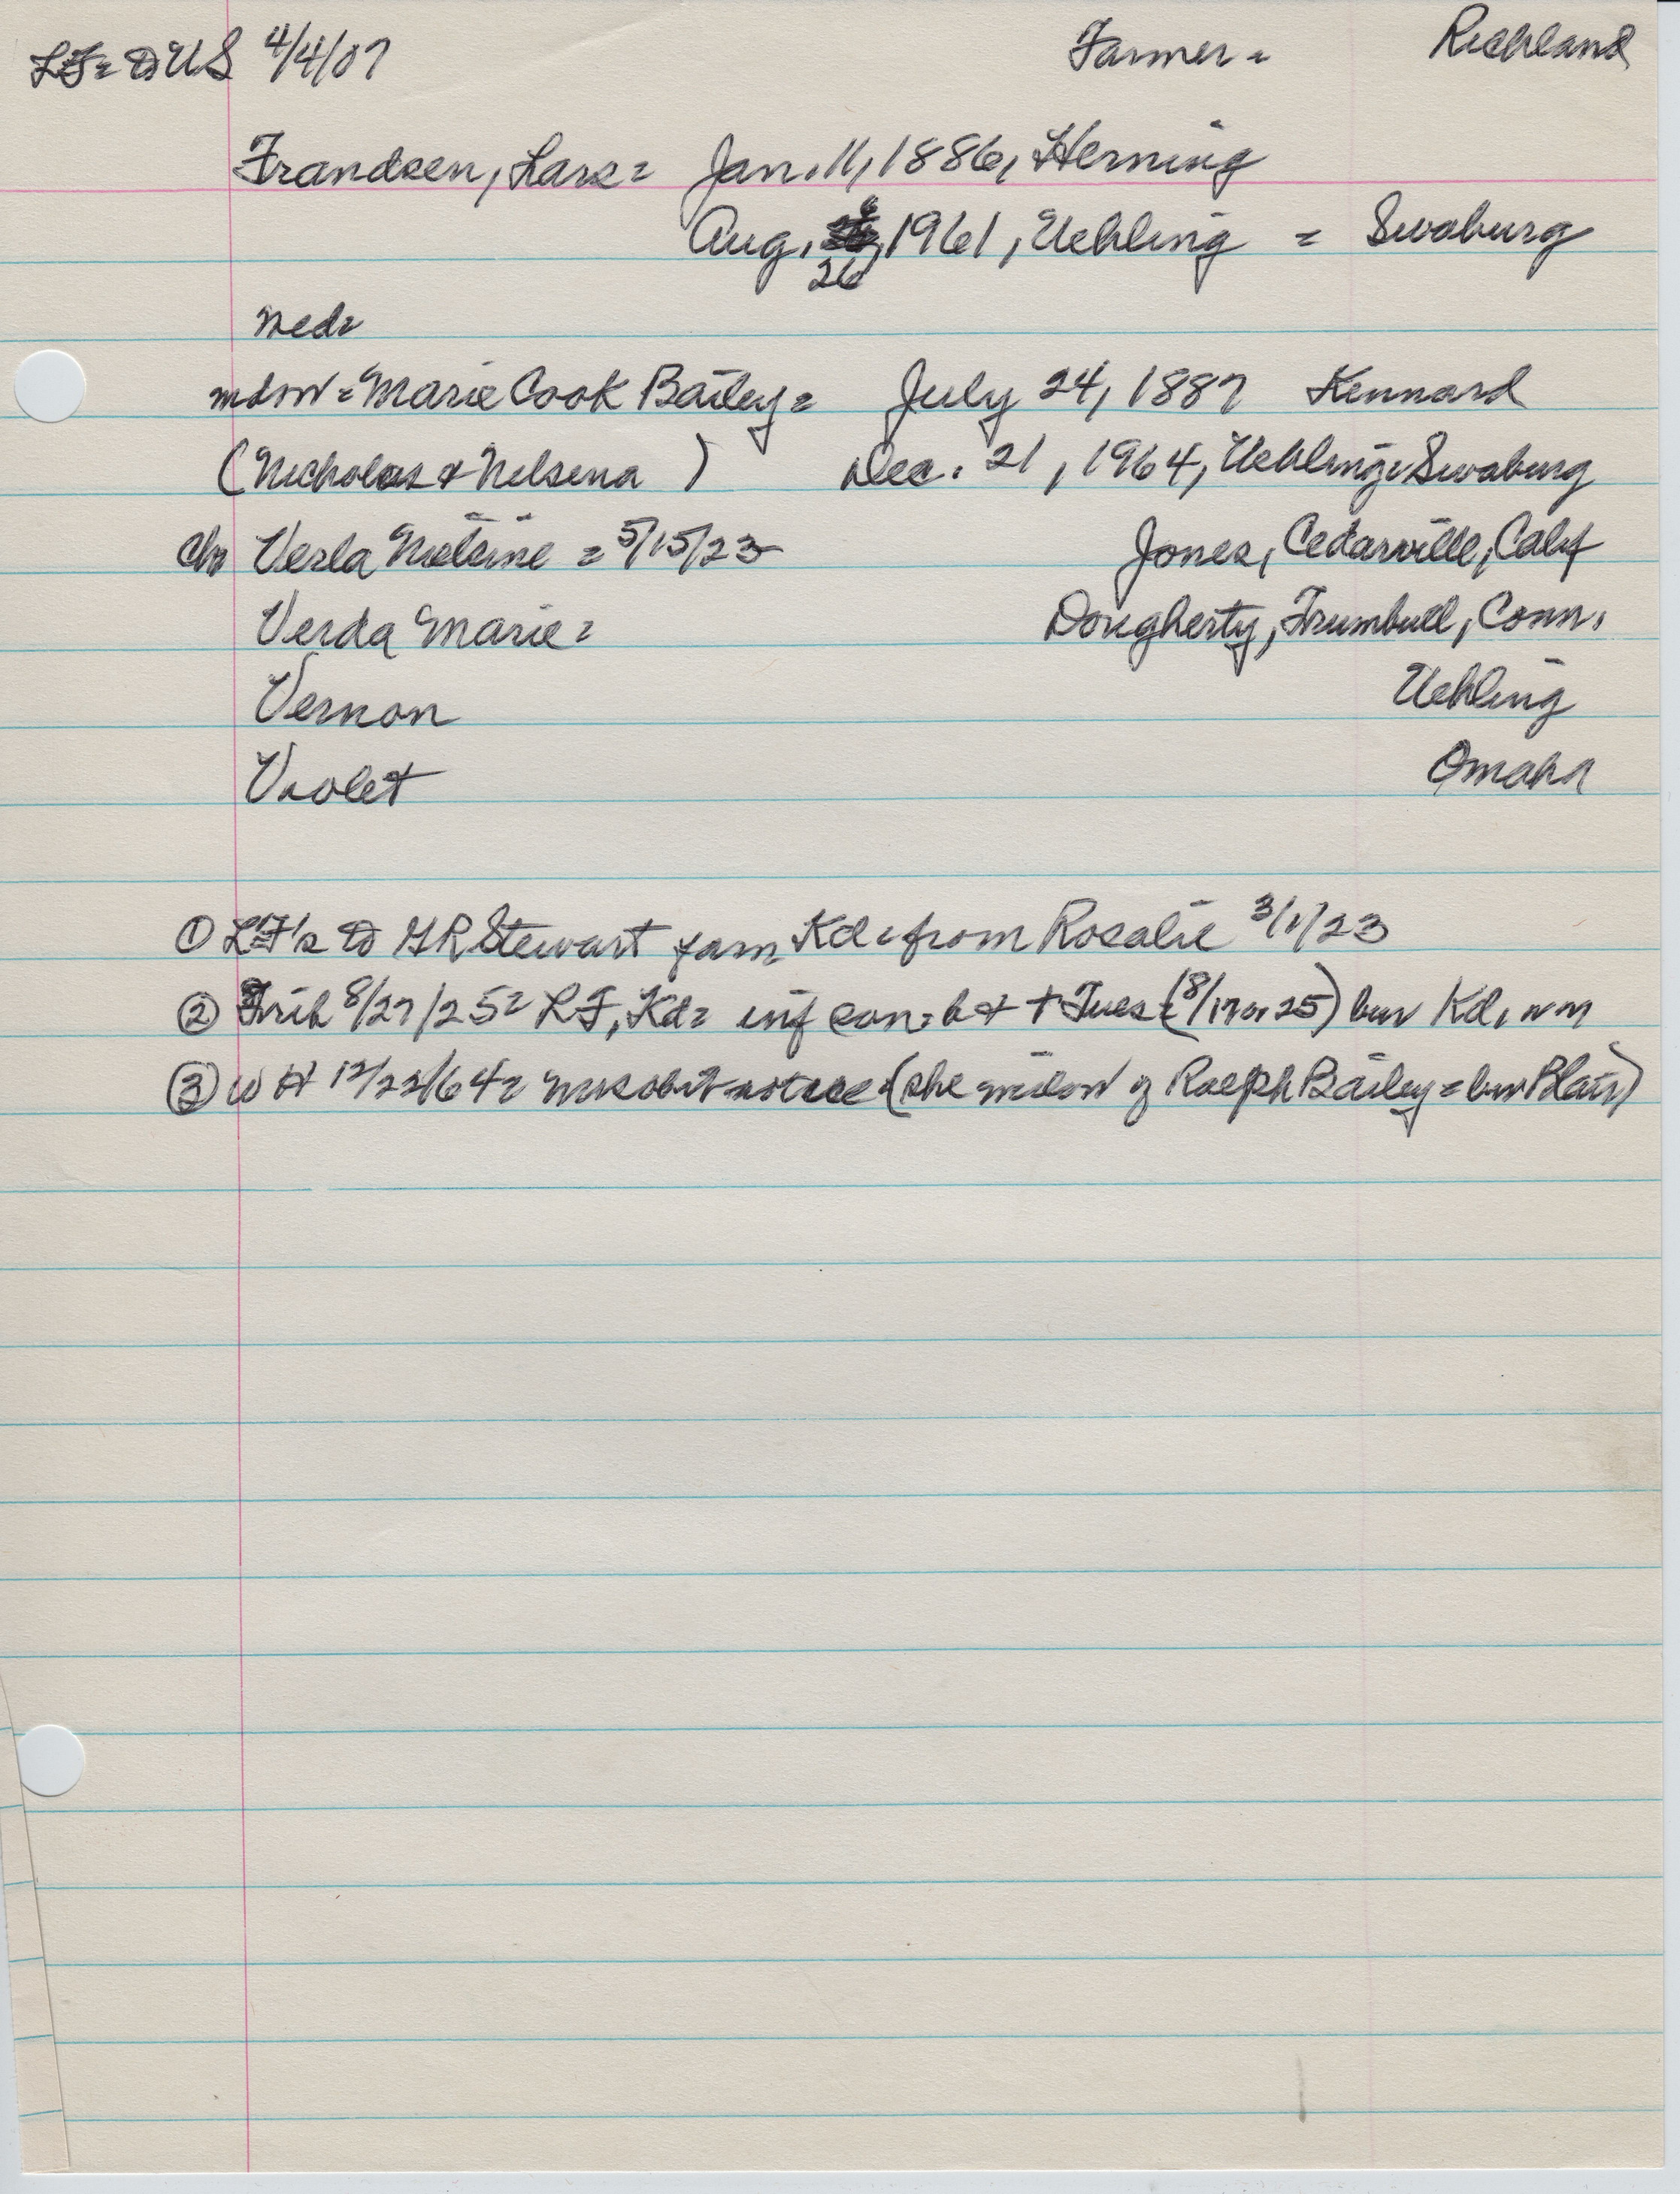 LF= to US 4/4/07 Farmer = Richland
Frandsen, Lars = Jan. 11, 1886, Herning
Aug. 26, 1961, Uehling = Swaburg
Ned=
mdw = Marie Cook Bailey = July 24, 1887 Kennard
(Nicholas & Nelsena ) Dec. 21, 1964, Uehling = Swaburg
chr Verla Nielsine = 5/15/23 Jones, Cedarville, Calif
Verda Marie = Dougherty, Trumbull, Conn.
Vernon Uehling
Violet Omaha
① LF's to GR Stewart farm Kd = from Rosalie 3/1/23
② Trib 8/27/25 = LF, Kd = inf son = b & † Tues (8/17 or 25) bur Kd, nm
③ WH 12/22/64 = Mrs obit notice (she widow of Ralph Bailey = bur Blair)